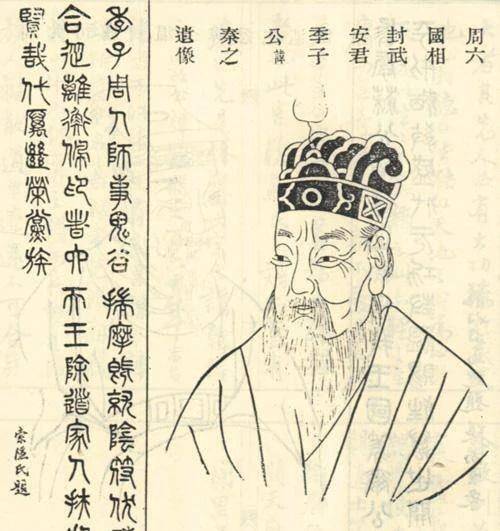 周六
國相
封武
安君
季子
公諱
秦之
遺像
季子周人師事鬼谷揣摩既就陰符伏
合從離衡佩印者六天王除道家人扶
賢哉代厲繼榮黨族
索隱氏題